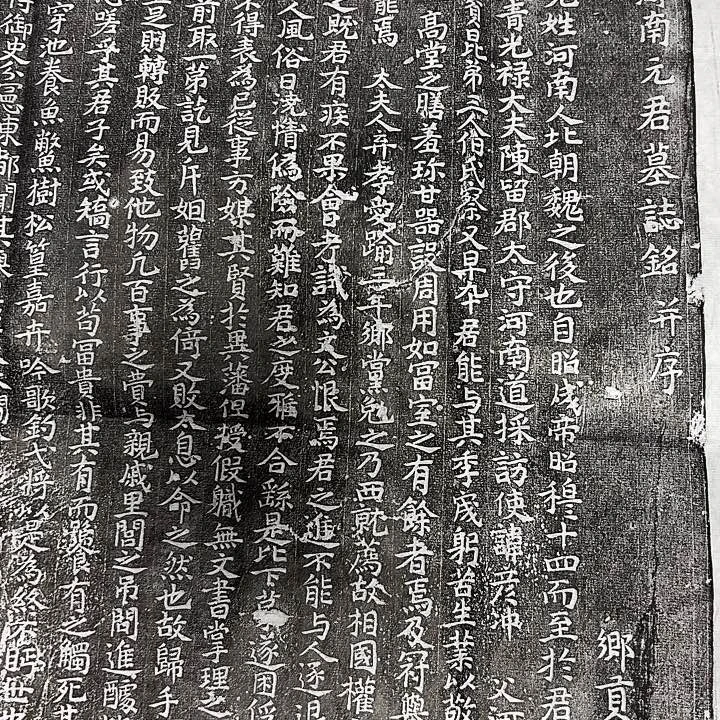 河南元君墓誌銘并序
鄉貢
姓河南人北朝魏之後也自昭成帝昭穆十四而至於君
青光祿大夫陳留郡太守河南道採訪使諱彥冲 父河
貧昆弟三人伯氏祭又早卒君能与其季成躬苦生業以敬
高堂之膳羞珍甘器設周用如富室之有餘者焉及符興
能焉 太夫人弃孝愛踰三年鄉黨勉之乃西就薦故相國權
之既君有疾不果會考試為文公恨焉君之進不能与人遂退
人風俗日澆情偽險而難知君之度雅不合繇是比下第遂困俘
得表為已從事方媒其賢於異藩但授假職無文書掌理之
前取一第訖見斥如舊之為倚又敗太息以命之然也故歸手
豆財轉販而易致他物凡百事之費与親戚里閭之吊閤進醵
嗟乎其君子矣或稿言行以苟富貴非其有而饕餮有之觸死其
穿池養魚鱉樹松篁嘉卉吟歌釣弋將以是為終否
侍御史分憲東都聞其